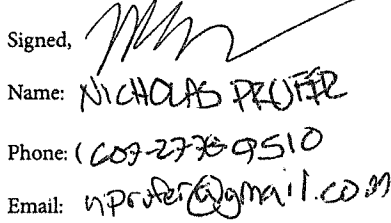 Signed,
Name: NICHOLAS PRUFER
Phone: 607-277-9510
Email: nprufer@gmail.com